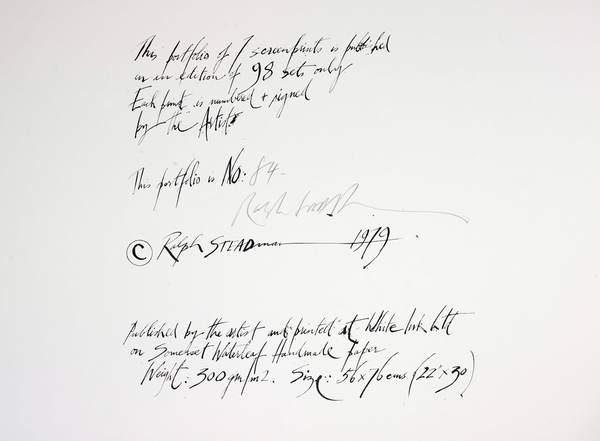 This portfolio of 7 screenprints is published
in an edition of 98 sets only
Each print is numbered + signed
by the Artist
This portfolio is No: 84.
Ralph Steadman
© Ralph STEADman 1979.
Published by the artist and printed at White Ink Ltd
on Somerset Waterleaf Handmade paper
Weight: 300gm/m2. Size: 56x76cms (22"x30)